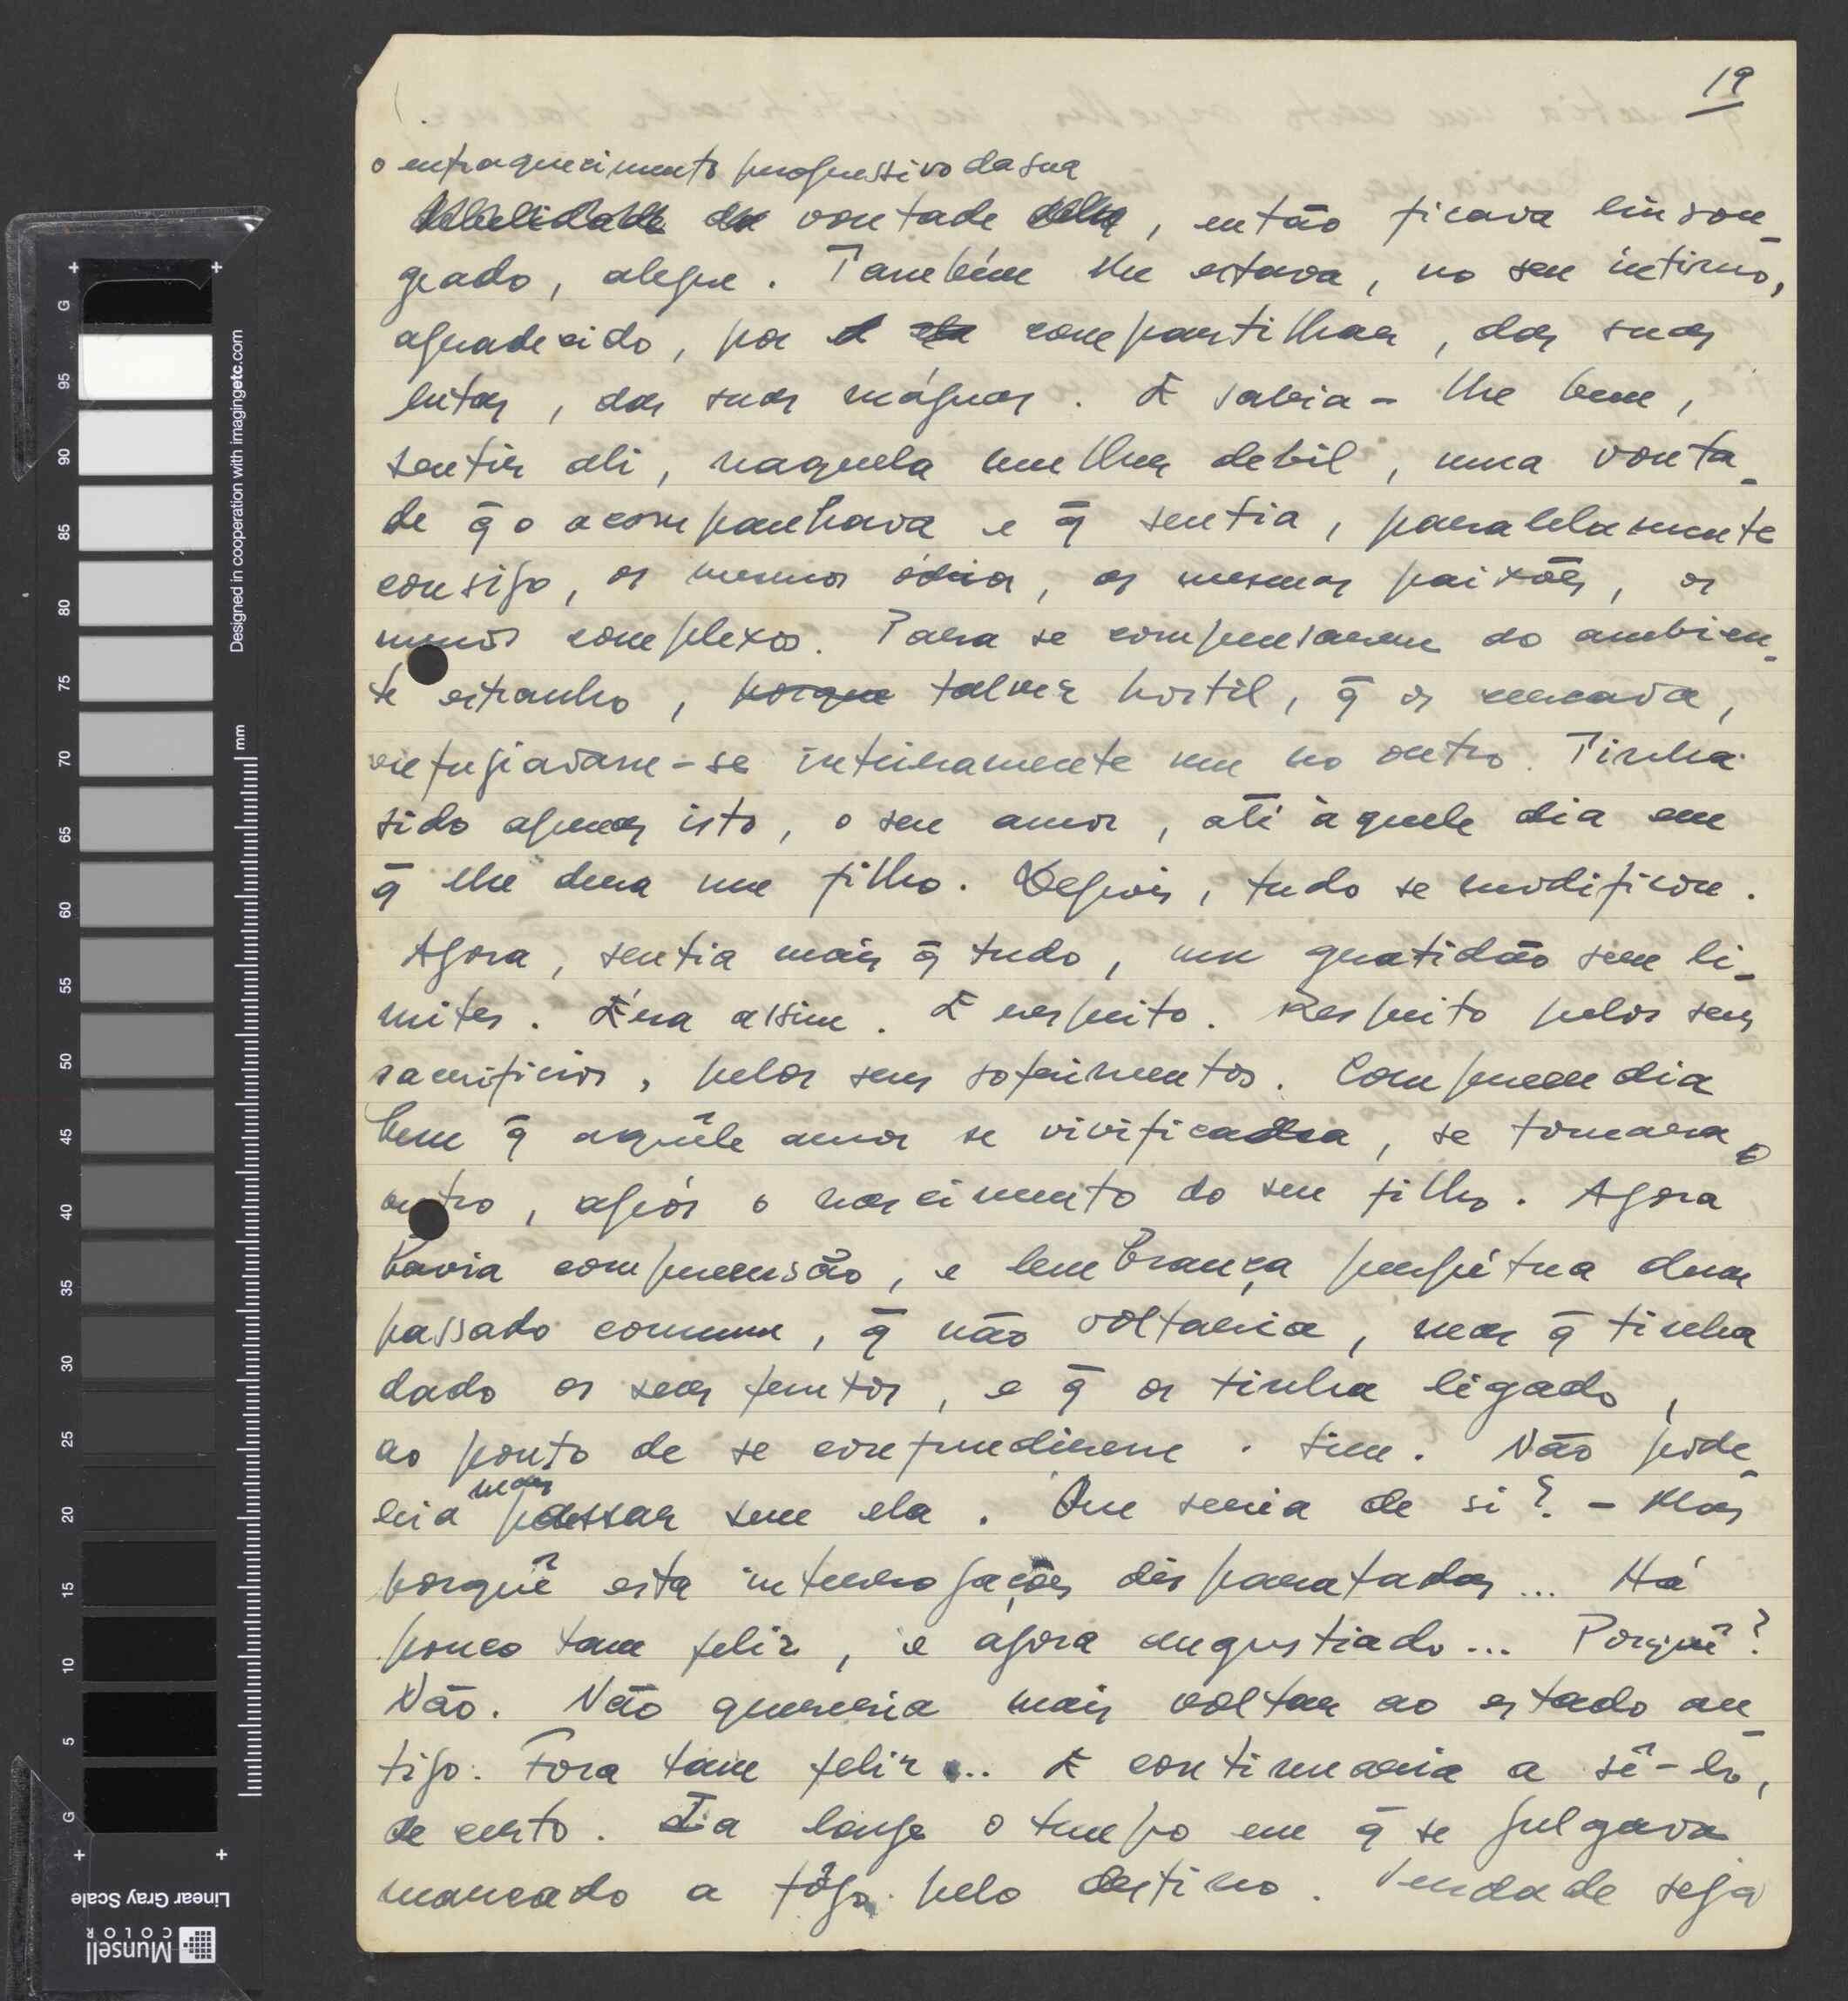 19
o enfraquecimento progressivo da sua
debelidade da vontade dela, então ficava linson-
geado, alegre. Também lhe estava, no seu íntimo,
agradecido, por ela compartilhar, das suas
lutas, das suas máguas. E sabia-lhe bem,
sentir ali, naquela mulher debil, uma vonta-
de q̄ o acompanhava e q̄ sentia, paralelamente
consigo, os mesmos ódios, as mesmas paixões, os
mesmos complexos. Para se compensarem do ambien-
te estranho, porque talvez hostil, q̄ os cercava,
refugiavam-se inteiramente um no outro. Tinha
sido apenas isto, o seu amor, até àquele dia em
q̄ lhe dera um filho. Depois, tudo se modificou.
Agora, sentia mais q̄ tudo, um gratidão sem li-
mites. Éra assim. E respeito. Respeito pelos seus
sacrifícios, pelos seus sofrimentos. Compreendia
bem q̄ aquêle amor se vivificara, se tornara
outro, após o nascimento do seu filho. Agora
havia compreensão, e lembrança perpétua dum
passado comum, q̄ não voltaria, mas q̄ tinha
dado os seus frutos, e q̄ os tinha ligado,
ao ponto de se confundirem. Sim. Não pode-
mas
ria passar sem ela. Que seria de si? - Mas
porquê esta interrogações disparatadas... Há
pouco tam feliz, e agora angustiado... Porquê?
Não. Não quereria mais voltar ao estado an-
tigo. Fora tam feliz... E continuaria a sê-lo,
de certo. Ia longe o tempo em q̄ se julgava
marcado a fôgo pelo destino. Verdade seja
Designed in cooperation with imagingetc.com
mm
G 95 90 85 80 75 70 65 60 55 50 45 40 35 30 25 20 15 10 5 G
Linear Gray Scale
Munsell
COLOR